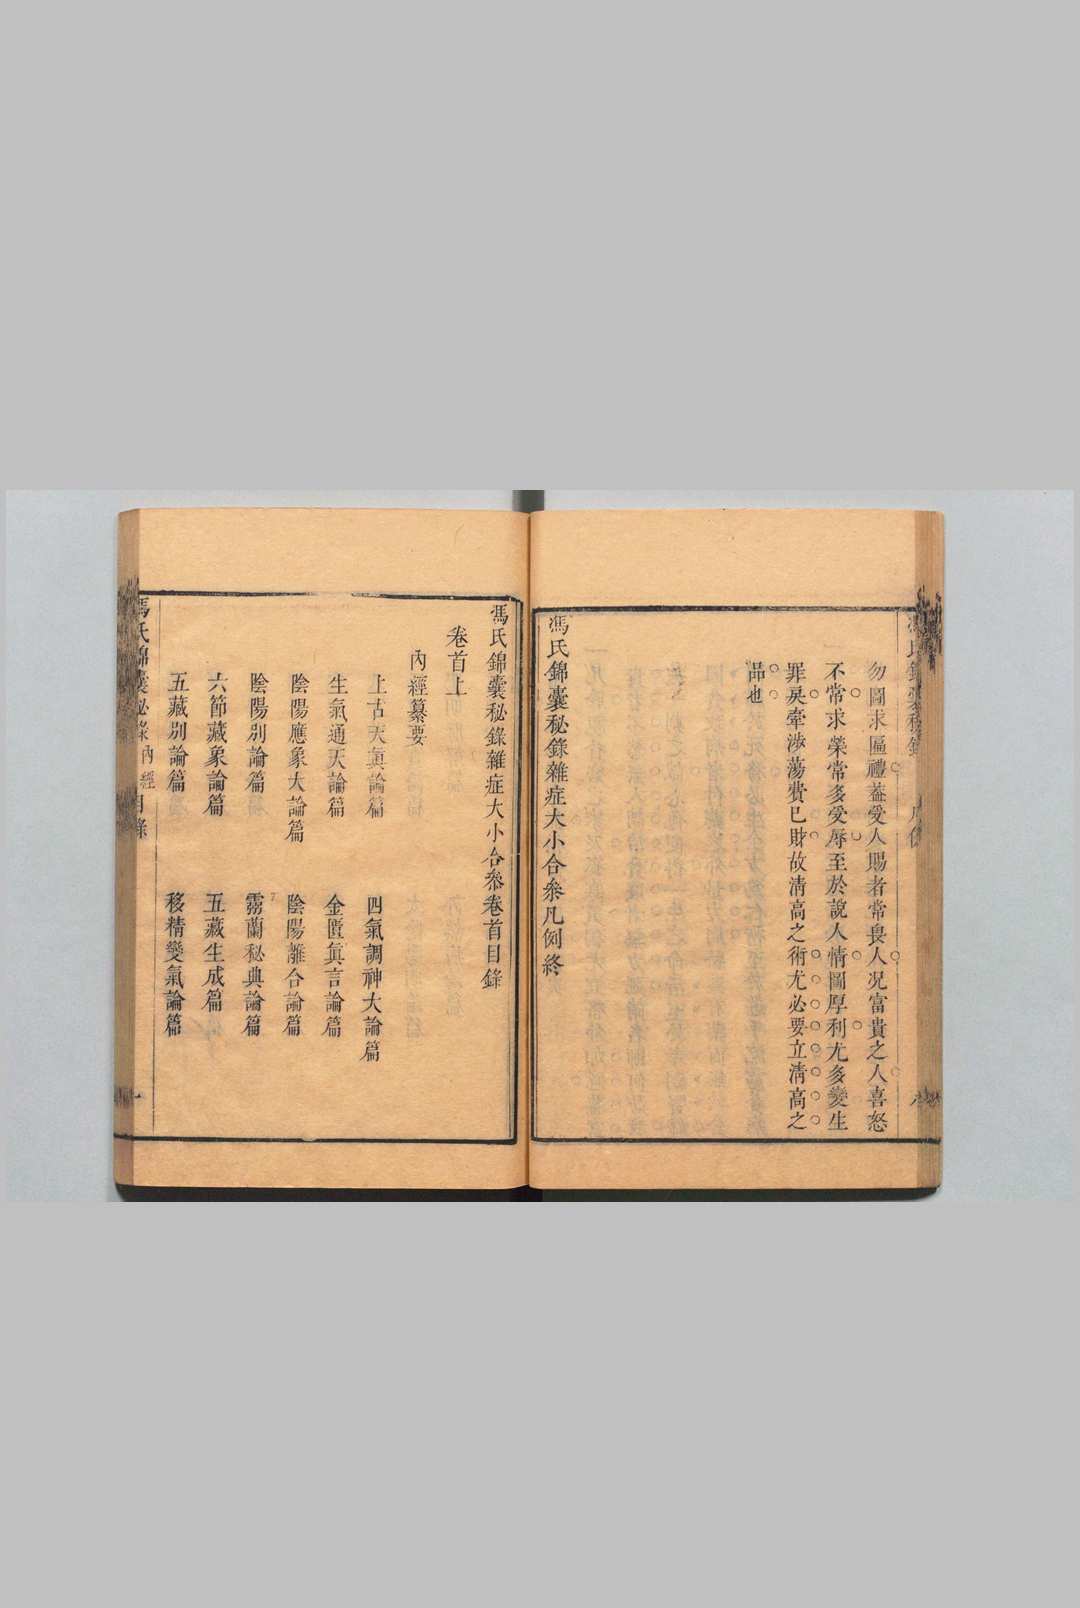 勿圖求區禮葢受人賜者常畏人况富貴之人喜怒
不常求榮常多受辱至於說人情圖厚利尤多變生
罪戾牽涉蕩費已財故淸高之術尤必要立淸高之
品也
馮氏錦囊秘錄雜症大小合叅凡例終
馮氏錦囊秘錄雜症大小合叅卷首目錄
卷首上
內經纂要
上古天眞論篇
四氣調神大論篇
生氣通天論篇
金匱眞言論篇
陰陽應象大論篇
陰陽離合論篇
陰陽別論篇
靈蘭秘典論篇
六節藏象論篇
五藏生成篇
五藏別論篇
移精變氣論篇
馮氏錦囊秘錄
內經
目錄